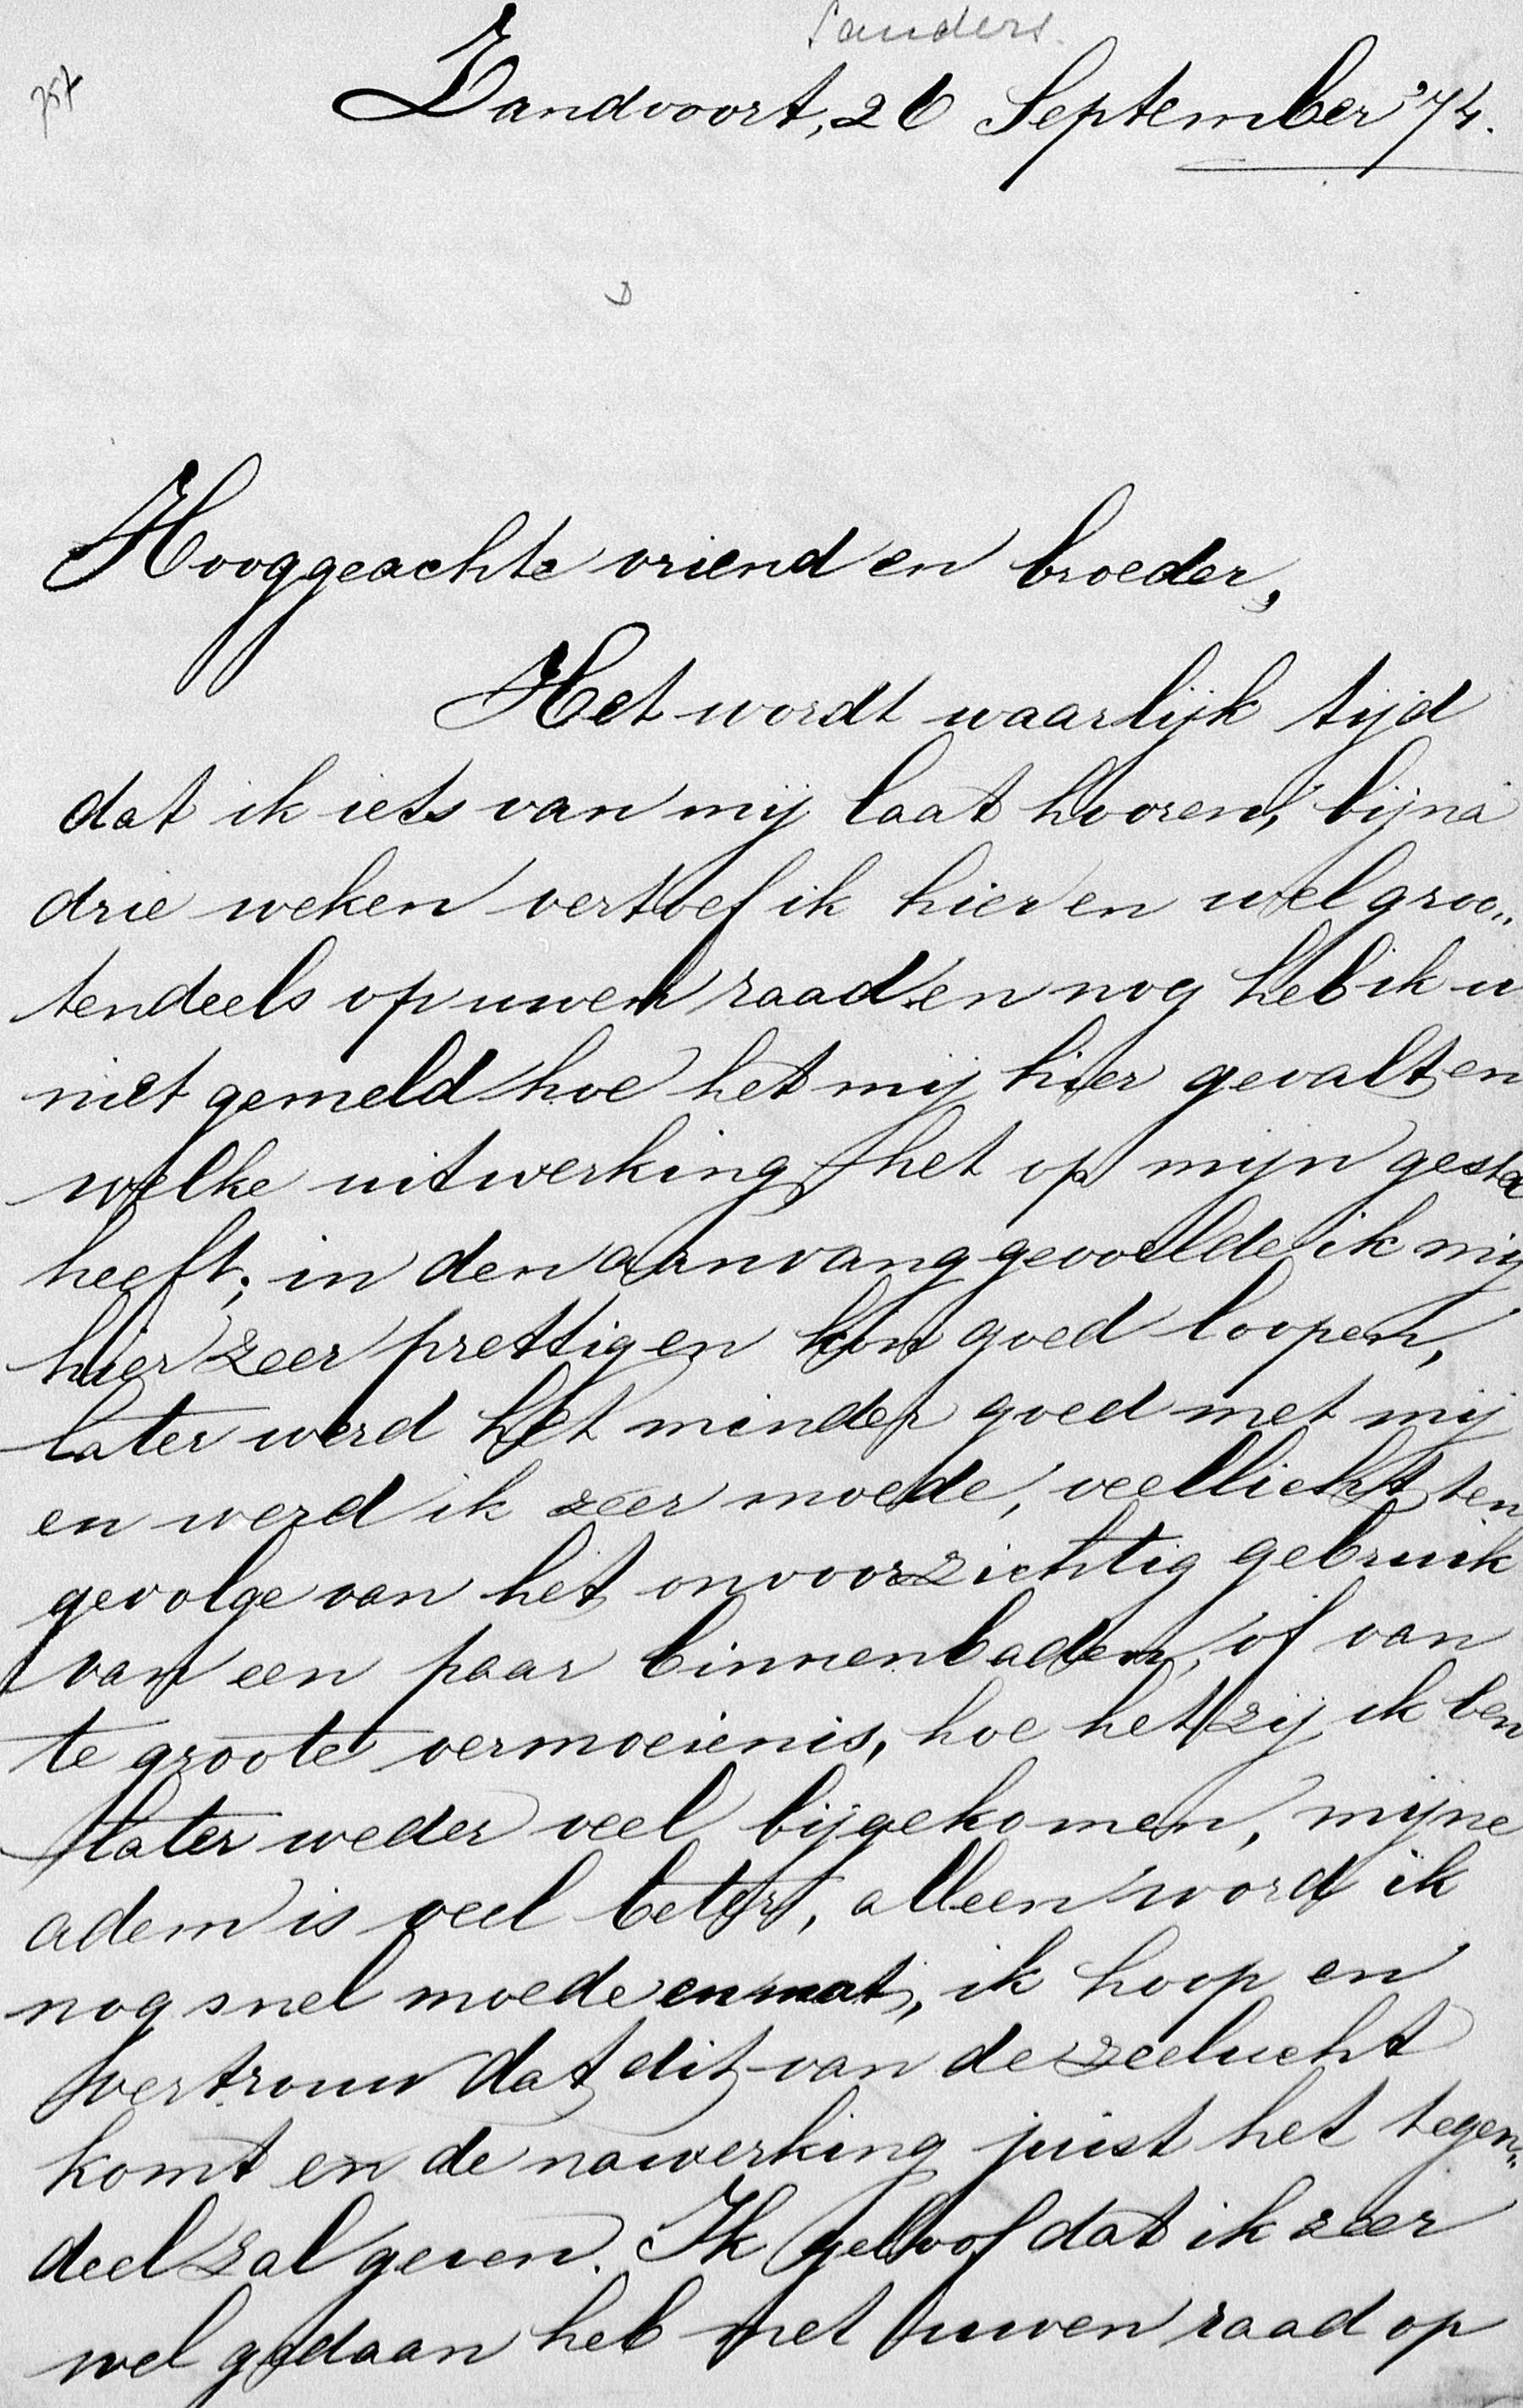 Sanders.
Zandvoort, 26 September '74.
Hooggeachte vriend en broeder,
Het wordt waarlijk tijd
dat ik iets van mij laat hooren, bijna
drie weken vertoef ik hier en wel groo„
tendeels op uwen raad en nog heb ik u
niet gemeld hoe het mij hier gevalt en
welke uitwerking het op mijn gestel
heeft; in den aanvang gevoelde ik mij
hier zeer prettig en kon goed loopen,
later werd het minder goed met mij
en werd ik zeer moede, veellicht ten
gevolge van het onvoorzichtig gebruik
van een paar binnenbaden, of van
te groote vermoeienis, hoe het zij ik ben
later weder veel bijgekomen, mijne
adem is veel beter, alleen word ik
nog snel moede en mat, ik hoop en
vertrouw dat dit van de zeelucht
komt en de nawerking juist het tegen„
deel zal geven. Ik geloof dat ik zeer
wel gedaan heb met uwen raad op